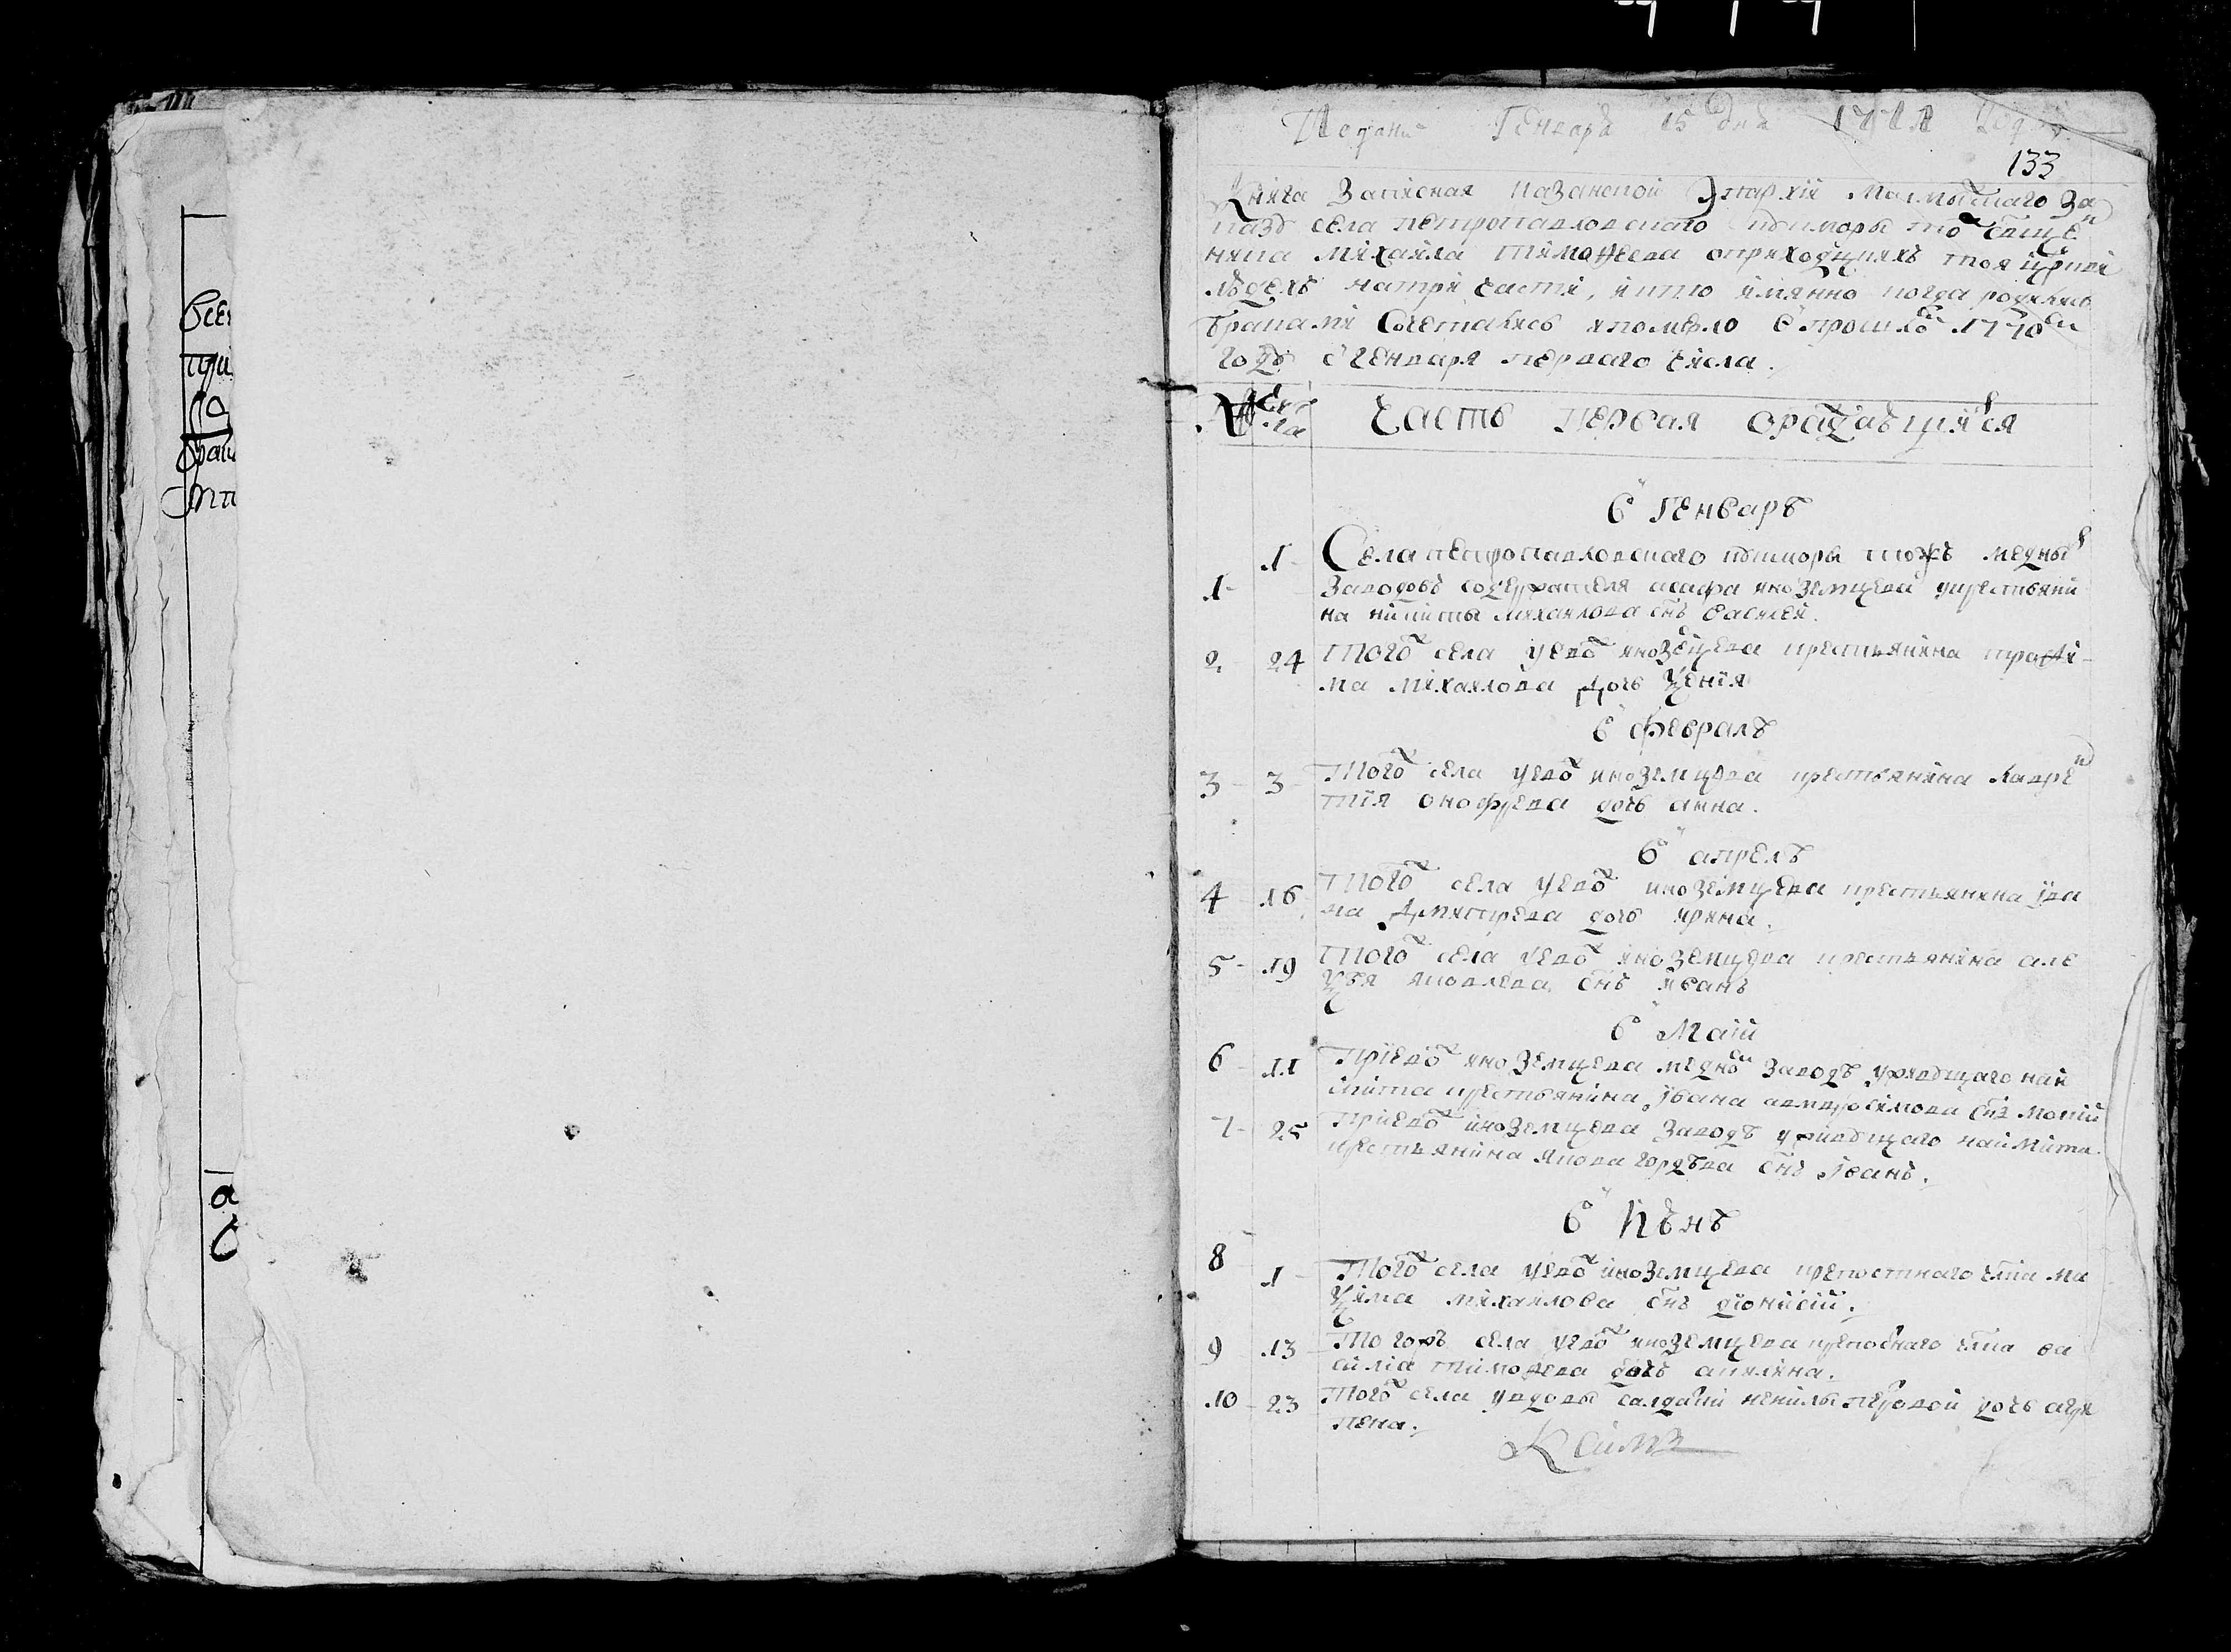 Генваря 15 дня 1771 Году
133
Книга Записная казанской Эпархіи малмыжскаго За
каз села петропавловскаго кукморы тожъ Сщен
ника михаила тимофеева оприходцкихъ тоя цркви
людехъ натри части, икто имянно когда родилис
браками Сочеталис ипомерло впрошлом 1770м
году сгенваря перваго числа.
№ Числа Часть первая ораждающихся
В Генваре
1 1 Села петропавловскаго кукморы тожъ медных
Заводовъ содержателя асафа иноземцева укрестьяни
на никиты михаилова снъ василеи.
2 24 Того села уево иноземцева крестьянина трофи
ма михаилова дочь Ксенія
В февралѣ
3 3 Того села уево иноземцева крестьянина лаврен
тія онофреева дочь анна.
В апрелѣ
4 16 Того села уево иноземцева крестьянина ива
на Дмитреева дочь ирина.
5 19 Того села уево иноземцева крестьянина але
ксѣя яковлева снъ иванъ
В Маіи
6 11 Приево иноземцева медном Заводѣ живущаго наи
мита крестьянина ивана амвросимова снъ мокій
7 25 Приево иноземцева Заводѣ живущаго наимита
крестьянина якова гордѣева снъ іванъ.
В Іюнѣ
8 1 Того села уево иноземцева крепостнаго члка ма
ксима михаилова снъ діонисій.
9 13 Тогожъ села уево иноземцева крепоснаго члка ва
силія тимофеева дочь акилина.
10 23 Того села увдовы салдатки ненилы петровой дочь агри
пена.
К симъ